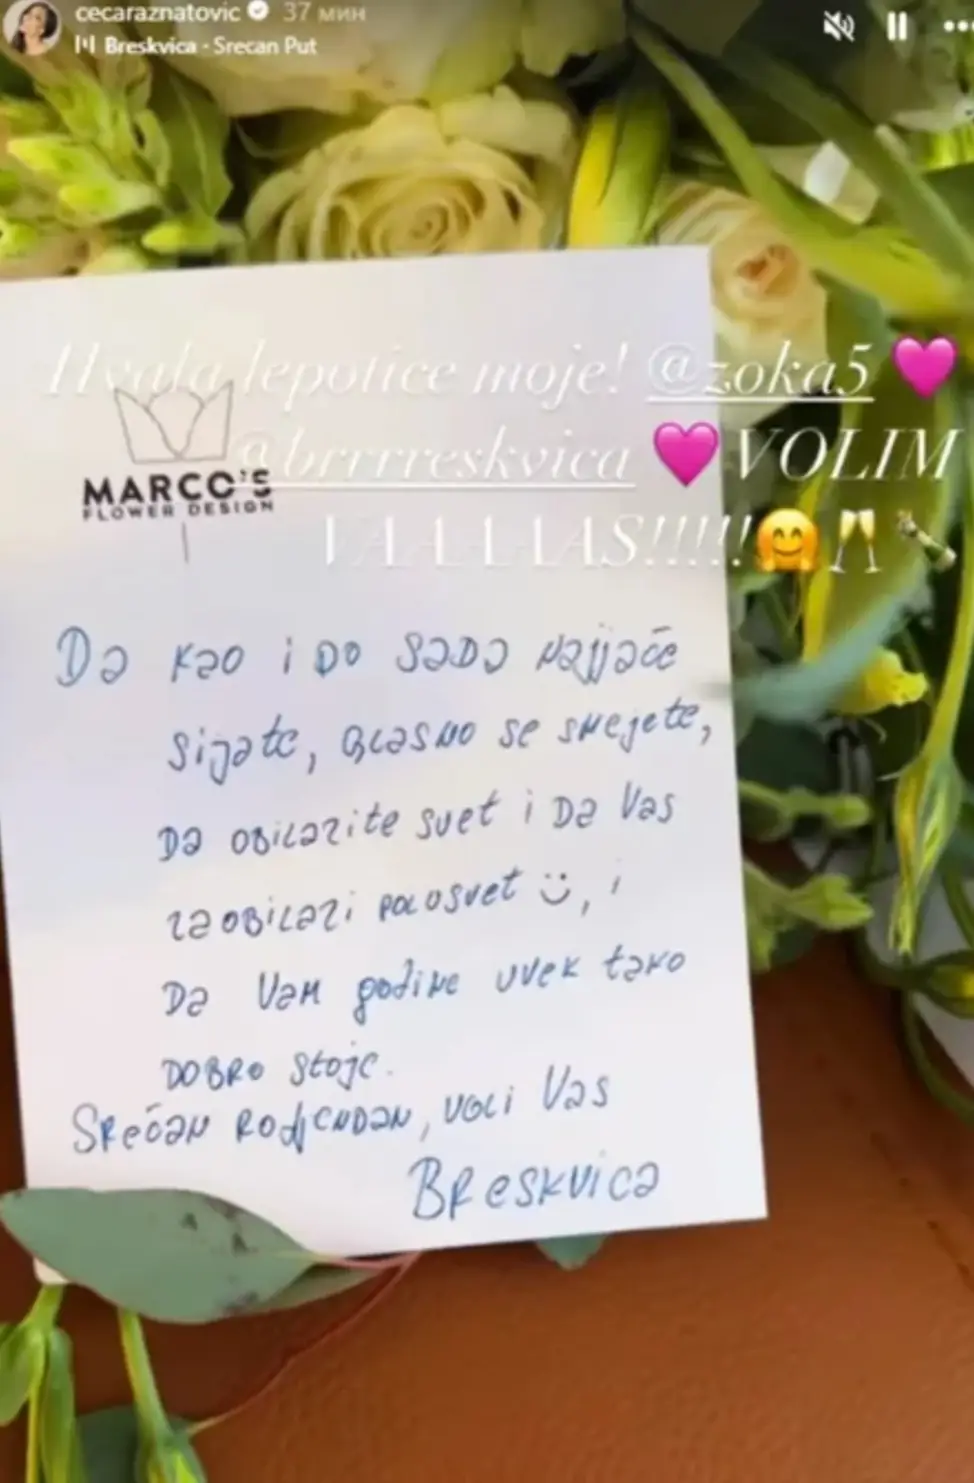 cecaraznatovic 37 мин
Breskvica · Srecan Put
Hvala lepotice moje! @zoka5
@brrrreskvica VOLIM
VAAAAAS!!!!!
MARCO'S
FLOWER DESIGN
Da kao i do sada najjače
sijate, glasno se smejete,
da obilazite svet i da Vas
zaobilazi polosvet :), i
da Vam godine uvek tako
dobro stoje.
Srećan rodjendan, voli Vas
Breskvica